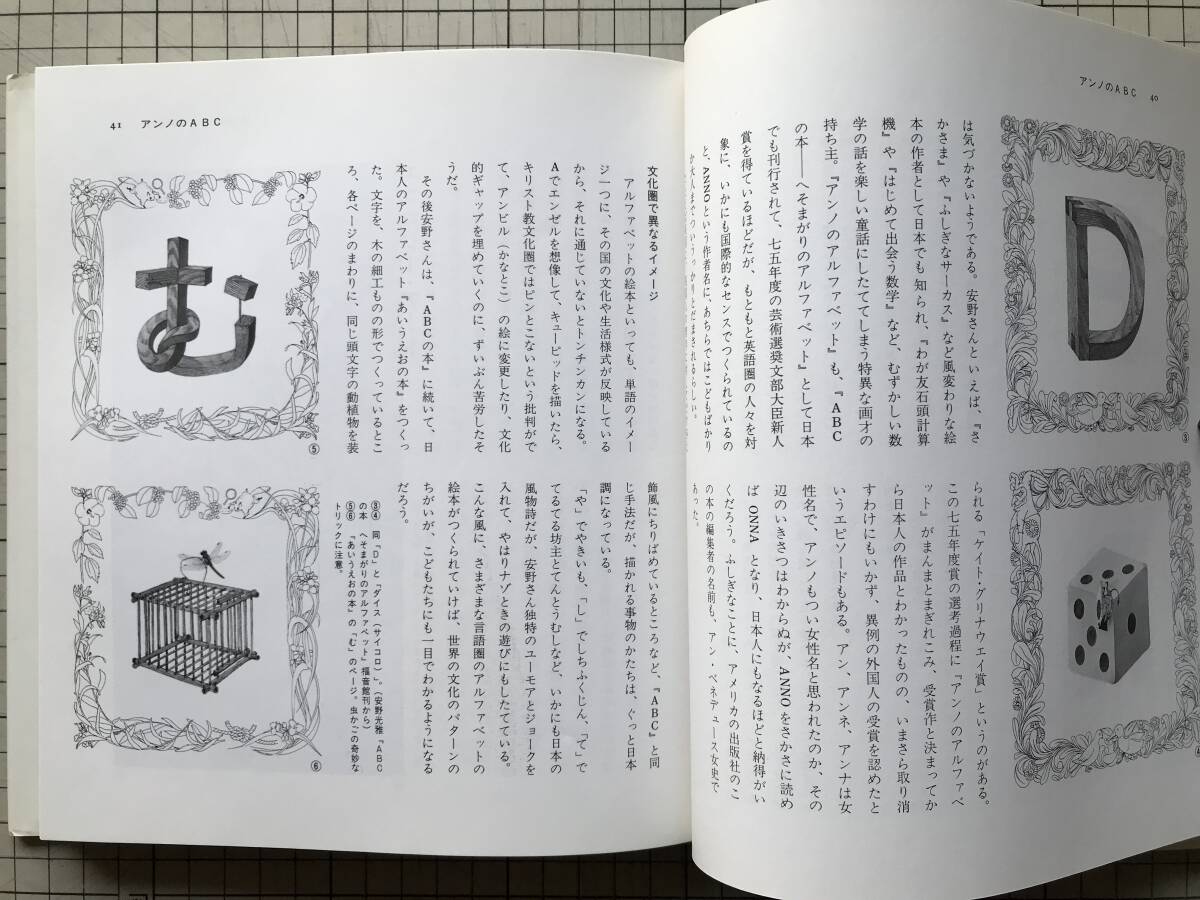 アンノのABC 40
は気づかないようである。安野さんといえば、『さ
かさま』や『ふしぎなサーカス』など風変わりな絵
本の作者として日本でも知られ、『わが友石頭計算
機』や『はじめて出会う数学』など、むずかしい数
学の話を楽しい童話にしたててしまう特異な画才の
持ち主。『アンノのアルファベット』も、『ABC
の本――へそまがりのアルファベット』として日本
でも刊行されて、七五年度の芸術選奨文部大臣新人
賞を得ているほどだが、もともと英語圏の人々を対
象に、いかにも国際的なセンスでつくられているの
と、ANNOという作者名に、あちらではこどもばかり
か大人までついうっかりとだまされるらしい。
られる「ケイト・グリナウエイ賞」というのがある。
この七五年度賞の選考過程に『アンノのアルファベ
ット』がまんまとまぎれこみ、受賞作と決まってか
ら日本人の作品とわかったものの、いまさら取り消
すわけにもいかず、異例の外国人の受賞を認めたと
いうエピソードもある。アン、アンネ、アンナは女
性名で、アンノもつい女性名と思われたのか、その
辺のいきさつはわからぬが、ANNOをさかさに読め
ば ONNA となり、日本人にもなるほどと納得がい
くだろう。ふしぎなことに、アメリカの出版社のこ
の本の編集者の名前も、アン・ベネデュース女史で
あった。
D
③
41 アンノのABC
文化圏で異なるイメージ
アルファベットの絵本といっても、単語のイメー
ジ一つに、その国の文化や生活様式が反映している
から、それに通じていないとトンチンカンになる。
Aでエンゼルを想像して、キューピッドを描いたら、
キリスト教文化圏ではピンとこないという批判がで
て、アンビル(かなとこ)の絵に変更したり、文化
的ギャップを埋めていくのに、ずいぶん苦労したそ
うだ。
その後安野さんは、『ABCの本』に続いて、日
本人のアルファベット『あいうえおの本』をつくっ
た。文字を、木の細工ものの形でつくっているとこ
ろ、各ページのまわりに、同じ頭文字の動植物を装
飾風にちりばめているところなど、『ABC』と同
じ手法だが、描かれる事物のかたちは、ぐっと日本
調になっている。
「や」でやきいも、「し」でしちふくじん、「て」で
てるてる坊主とてんとうむしなど、いかにも日本の
風物詩だが、安野さん独特のユーモアとジョークを
入れて、やはりナゾときの遊びにもしたてている。
こんな風に、さまざまな言語圏のアルファベットの
絵本がつくられていけば、世界の文化のパターンの
ちがいが、こどもたちにも一目でわかるようになる
だろう。
む
⑤
⑥
③④ 同「D」と「ダイス(サイコロ)」。(安野光雅『ABC
の本 へそまがりのアルファベット』福音館刊から)
⑤⑥ 『あいうえおの本』の「む」のページ。虫かごの奇妙な
トリックに注意。